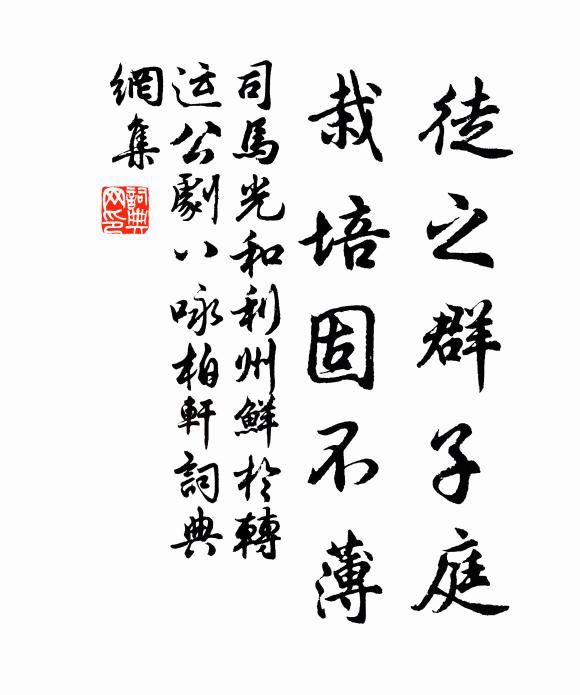 徒之群子庭
栽培固不薄
司馬光和利州鮮於轉
运公劇八咏柏軒詞典
網集
詞典网印